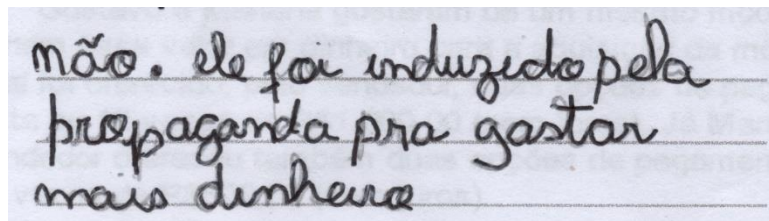 não. ele foi induzido pela
propaganda pra gastar
mais dinheiro